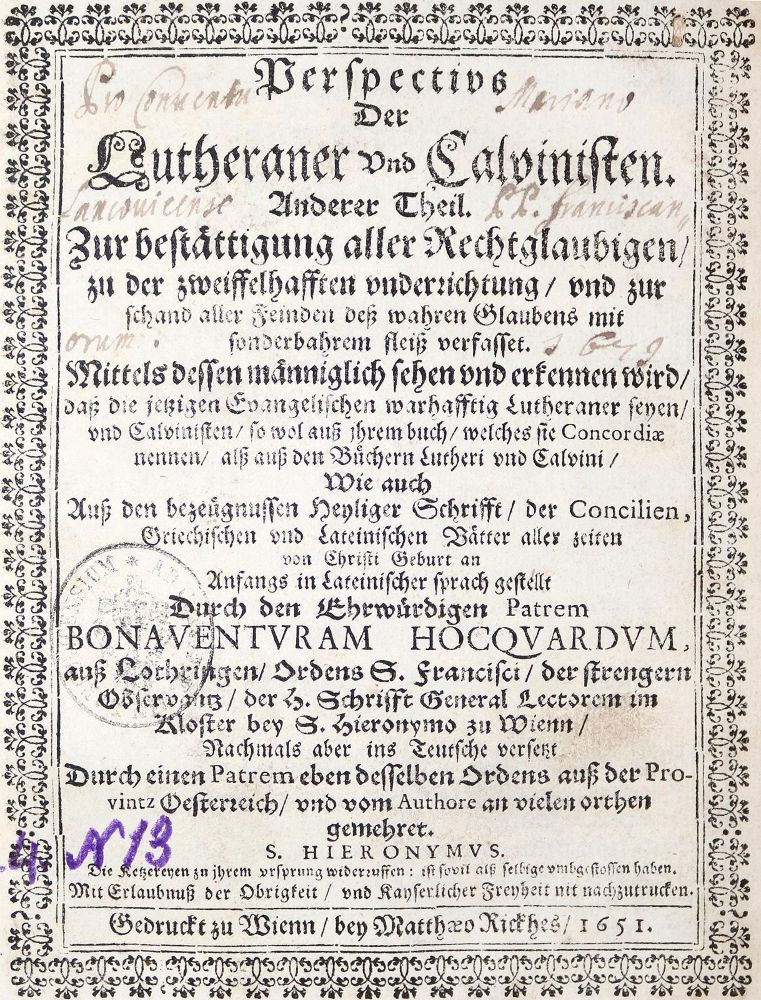 Perspectivs
Der
Lutheraner vnd Calvinisten.
Anderer Theil.
Zur bestättigung aller Rechtglaubigen/
zu der zweiffelhafften vnderrichtung/ vnd zur
schand aller Feinden deß wahren Glaubens mit
sonderbahrem fleiß verfasset.
Mittels dessen männiglich sehen vnd erkennen wird/
daß die jetzigen Evangelischen warhafftig Lutheraner seyen/
vnd Calvinisten/ so wol auß jhrem buch/ welches sie Concordiæ
nennen/ alß auß den Büchern Lutheri vnd Calvini/
Wie auch
Auß den bezeügnussen Heyliger Schrifft/ der Concilien,
Griechischen vnd Lateinischen Vätter aller zeiten
von Christi Geburt an
Anfangs in Lateinischer sprach gestellt
Durch den Ehrwürdigen Patrem
BONAVENTVRAM HOCQVARDVM,
auß Lothringen/ Ordens S. Francisci/ der strengern
Observantz/ der H. Schrifft General Lectorem im
Kloster bey S. Hieronymo zu Wienn/
Nachmals aber ins Teutsche versetzt
Durch einen Patrem eben desselben Ordens auß der Pro-
vintz Oesterreich/ vnd vom Authore an vielen orthen
gemehret.
S. HIERONYMVS.
Die Ketzereyen zu jhrem vrsprung widerruffen: ist sovil alß selbige vmbgestossen haben.
Mit Erlaubnuß der Obrigkeit/ vnd Kayserlicher Freyheit nit nachzutrucken.
Gedruckt zu Wienn/ bey Matthæo Rickhes/ 1651.
Pro Conventu Mariano
Lancoviicense P.P. Franciscan
orum. 1679
N 13